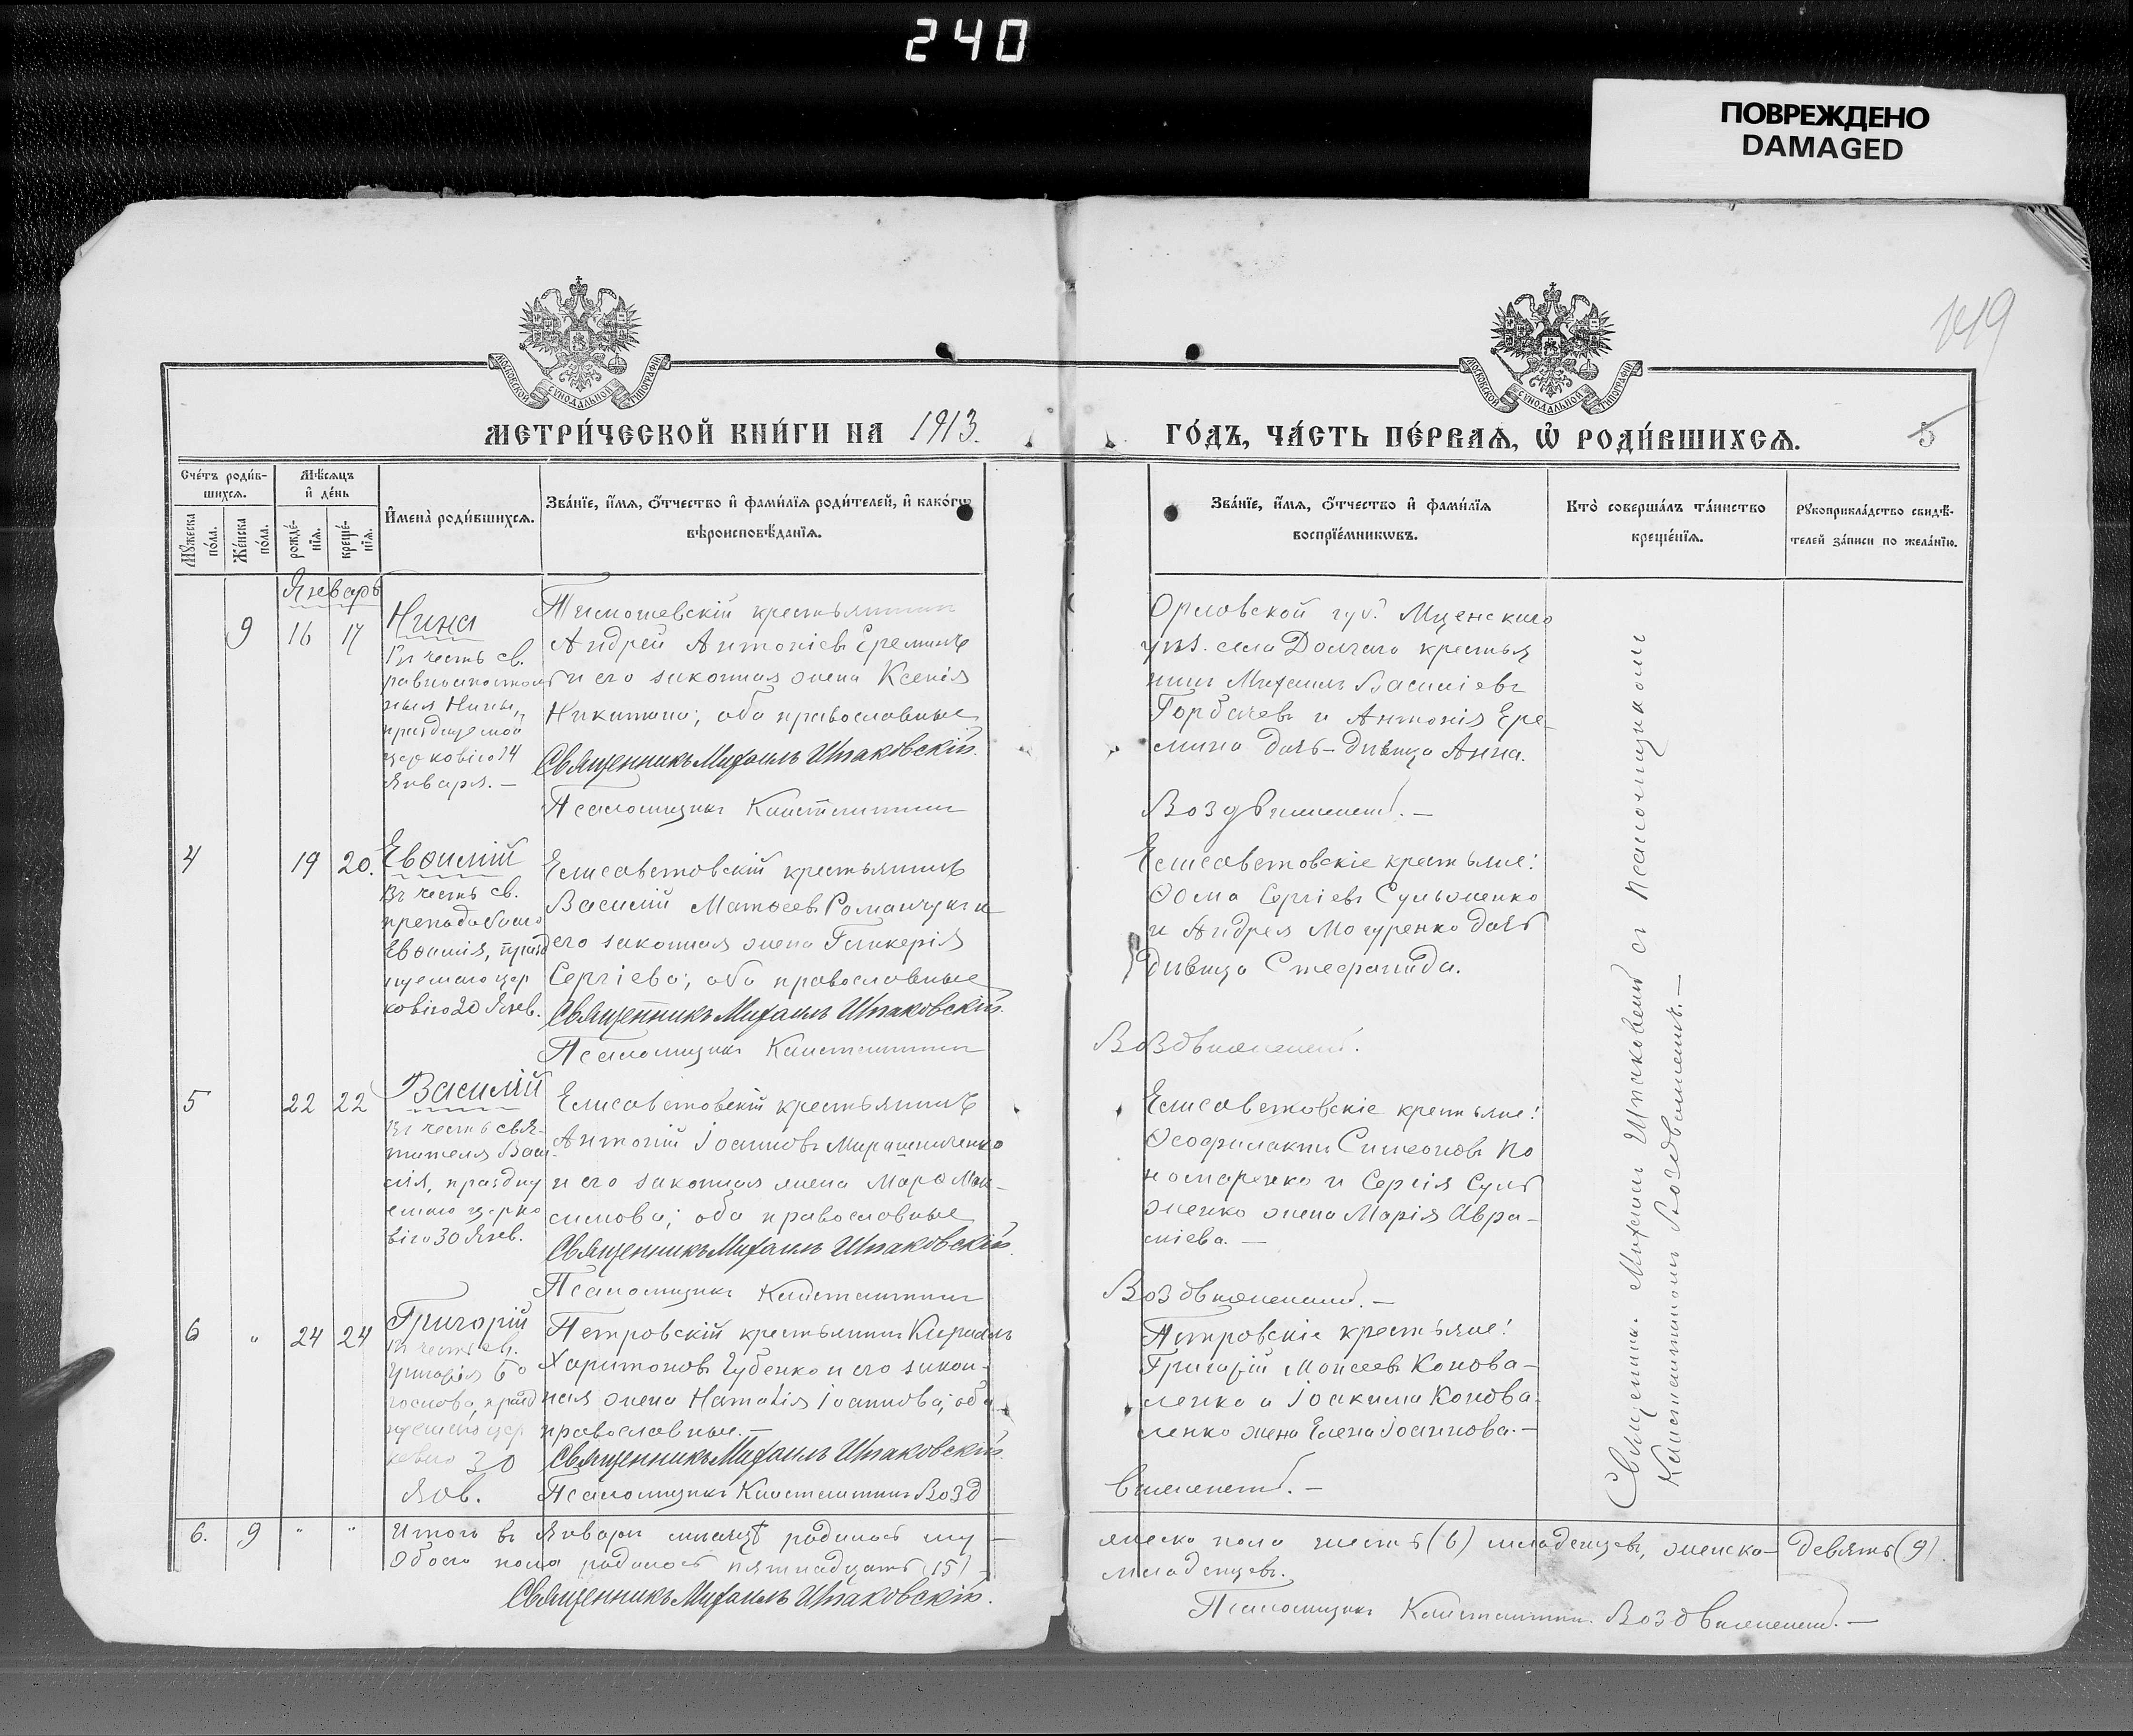 240
ПОВРЕЖДЕНО
DAMAGED
МОСКОВСКОЙ СѴНОДАЛЬНОЙ ТИПОГРАФІИ
МОСКОВСКОЙ СѴНОДАЛЬНОЙ ТИПОГРАФІИ
МЕТРИ́ЧЕСКОЙ КНИ́ГИ НА 1913.
ГО́ДЪ, ЧА́СТЬ ПЕ́РВАѦ, Ѡ РОДИ́ВШИХСѦ.
5
Сче́тъ роди́в-
шихсѧ.
Мꙋ́жеска по́ла.
Же́нска по́ла.
Мѣ́сѧцъ
и҆ де́нь
рожде́-
нїѧ.
креще́-
нїѧ.
И҆мена̀ роди́вшихсѧ.
Зва́нїе, и҆́мѧ, ѻ҆́тчество и҆ фами́лїѧ роди́телей, и҆ како́гѡ
вѣроисповѣ́данїѧ.
Зва́нїе, и҆́мѧ, ѻ҆́тчество и҆ фами́лїѧ
воспрїе́мникѡвъ.
Кто̀ соверша́лъ та́инство
креще́нїѧ.
Рꙋкоприкла́дство свидѣ́-
телей за́писи по жела́нїю.
Январь
9 16 17
Нина
Въ честь св.
равноапостоль
ныя Нины,
празднуемой
церковію 14
Января. —
Тимошевскій крестьянинъ
Андрей Антоніевъ Ереминъ
и его законная жена Ксенія
Никитина; оба православные
Священникъ Михаилъ Шпаковскій.
Псаломщикъ Константинъ
Орловской губ. Мценскаго
уѣз. села Долгаго крестья
нинъ Михаилъ Василіевъ
Горбачевъ и Антонія Ере-
мина дочь - дѣвица Анна.
Воздвиженскій. —
4 19 20.
Евѳимій
Въ честь св.
преподобнаго
Евѳимія, празд
нуемаго цер
ковію 20 Янв.
Елисаветовскій крестьянинъ
Василій Матѳеевъ Романчукъ и
его законная жена Гликерія
Сергіева; оба православные
Священникъ Михаилъ Шпаковскій.
Псаломщикъ Константинъ
Елисаветовскіе крестьяне:
Ѳома Сергіевъ Сульженко
и Андрея Могуренко дочь
дѣвица Стефанида.
Воздвиженскій.
5 22 22
Василій
Въ честь свя-
тителя Васи
лія, праздну
емаго церко
вію 30 Янв.
Елисаветовскій крестьянинъ
Антоній Іоанновъ Мирошниченко
и его законная жена Марѳа Мак-
симова; оба православные
Священникъ Михаилъ Шпаковскій.
Псаломщикъ Константинъ
Елисаветовскіе крестьяне:
Ѳеофилактъ Симеоновъ По
номаренко и Сергія Суль
женко жена Марія Авра-
міева. —
Воздвиженскій. —
6 " 24 24
Григорій
Въ честь св.
Григорія Бо
гослова, празд
нуемаго цер
ковію 30
Янв.
Петровскій крестьянинъ Кириллъ
Харитоновъ Губенко и его закон-
ная жена Наталія Іоаннова; оба
православные. —
Священникъ Михаилъ Шпаковскій.
Псаломщикъ Константинъ Возд
Петровскіе крестьяне:
Григорій Моисеевъ Конова-
ленко и Іоакима Конова-
ленко жена Елена Іоаннова. —
виженскій. —
Священникъ Михаилъ Шпаковскій съ псаломщикомъ
Константиномъ Воздвиженскимъ. —
6. 9 " " Итого въ Январѣ мѣсяцѣ родилось му
жеска пола шесть (6) младенцевъ, женска — девять (9).
Обоего пола родилось пятнадцать (15)
младенцевъ.
Священникъ Михаилъ Шпаковскій.
Псаломщикъ Константинъ Воздвиженскій. —